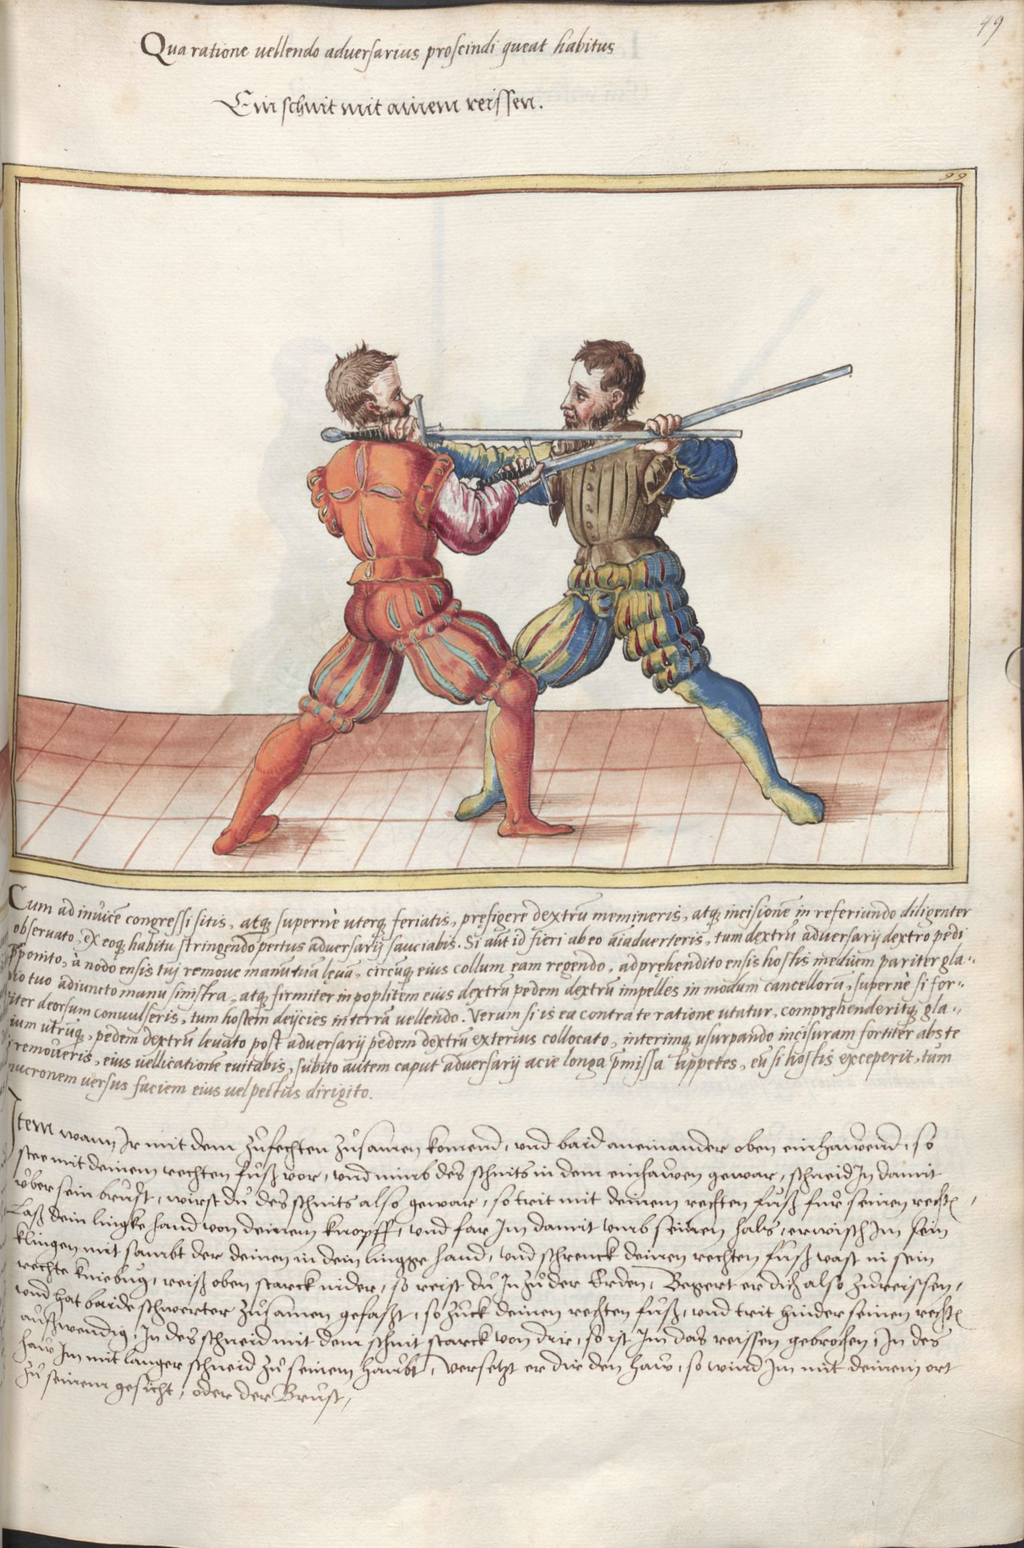 49
Qua ratione uellendo aduersarius proscindi queat habitus
Ein schnit mit ainem reissen.
99
Cum ad inuicē congressi sitis, atq; supernè uterq; feriatis, prefigere dextrū memineris, atq; incisionē in referiundo diligenter
obseruato, ex eoq; habitu stringendo pectus aduersarij sauciabis. Si aūt id fieri ab eo aīaduerteris, tum dextrū aduersarij dextro pedi
pponito, à nodo ensis tui remoue manū tuā leuā, circūq; eius collum eam regendo, adprehendito ensis hostis medium pariter gla-
dio tuo adiuncto manu sinistra, atq; firmiter in poplitem eius dextrū pedem dextrū impelles in modum cancellorū, supernè si for-
titer deorsum conuulseris, tum hostem deijcies in terrā uellendo. Verum si is ea contra te ratione utatur, comprehenderitq; gla-
dium utrūq;, pedem dextrū leuato post aduersarij pedem dextrū exterius collocato, interimq; usurpando incisuram fortiter abs te
remoueris, eius uellicationē euitabis, subito autem caput aduersarij acie longa pmissa appetes, eū si hostis exceperit, tum
mucronem uersus faciem eius uel pectus dirigito.
Item wann Ir mit dem zůfechten zůsamen komend, vnd baid aneinander oben einhawend, so
stee mit deinem rechten fůß vor, vnd nimb des schnits in dem einhawen gewar, schneid In damit
vber sein brůst, wirst dů des schnits also gewar, so trit mit deinem rechten fůß fůr seinen rechtē,
Laß dein lingke hand von deinem knopff, vnd far Im damit vmb seinen hals, erwisch Im sein
klingen mit sambt der deinen in dein lingge hand, vnd schrenck deinen rechten fůß vast in sein
rechte kniebůg, reiß oben starck nider, so reist dů In zů der Erden, Begert er dich also zůreissen,
vnd hat baide schwerter zůsamen gefasst, so zůck deinen rechten fůß, vnd trit hinder seinen rechtē
außwendig, In des schneid mit dem schnit starck von dir, so ist Im das reissen gebrochen, In des
haw Im mit langer schneid zů seinem haůbt, Versetzt er dir den haw, so wind Im mit deinem ort
zů seinem gesicht, oder der Brůst,